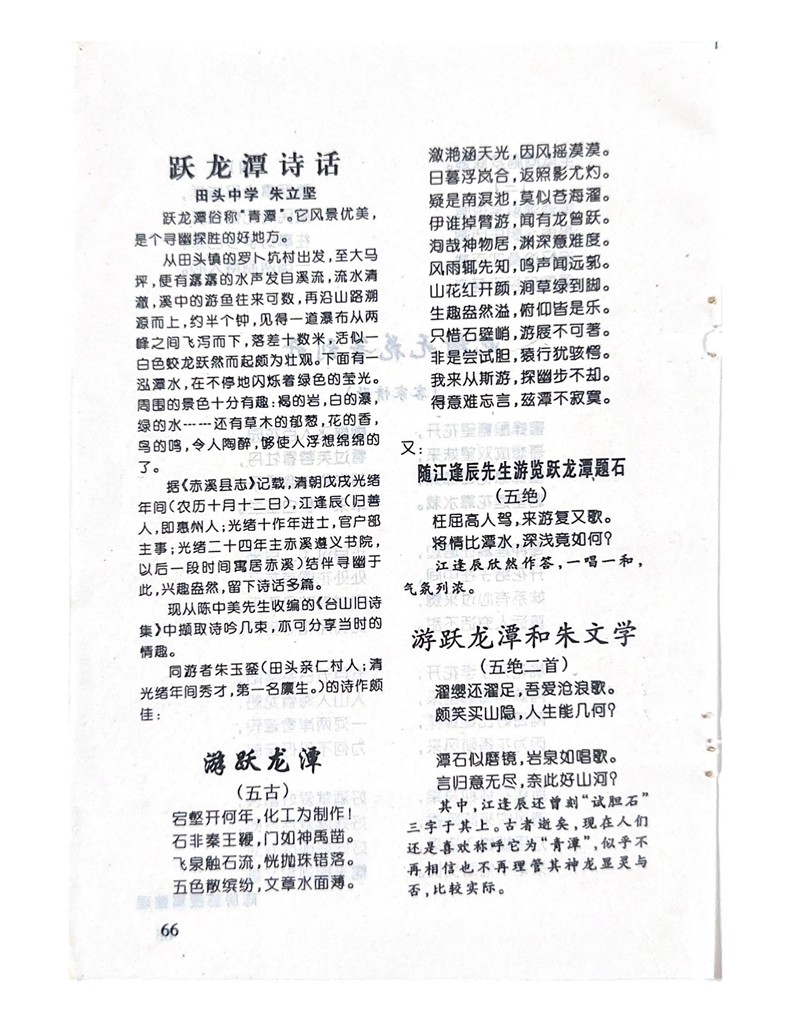 跃龙潭诗话
田头中学 朱立坚
跃龙潭俗称“青潭”。它风景优美，
是个寻幽探胜的好地方。
从田头镇的罗卜坑村出发，至大马
坪，便有潺潺的水声发自溪流，流水清
澈，溪中的游鱼往来可数，再沿山路溯
源而上，约半个钟，见得一道瀑布从两
峰之间飞泻而下，落差十数米，活似一
白色蛟龙跃然而起颇为壮观。下面有一
泓潭水，在不停地闪烁着绿色的莹光。
周围的景色十分有趣：褐的岩，白的瀑，
绿的水------还有草木的郁葱，花的香，
鸟的鸣，令人陶醉，够使人浮想绵绵的
了。
据《赤溪县志》记载，清朝戊戌光绪
年间（农历十月十二日），江逢辰（归善
人，即惠州人；光绪十作年进士，官户部
主事；光绪二十四年主赤溪遵义书院，
以后一段时间寓居赤溪）结伴寻幽于
此，兴趣盎然，留下诗话多篇。
现从陈中美先生收编的《台山旧诗
集》中撷取诗吟几束，亦可分享当时的
情趣。
同游者朱玉銮（田头亲仁村人；清
光绪年间秀才，第一名廪生。）的诗作颇
佳：
游跃龙潭
（五古）
宕壑开何年，化工为制作！
石非秦王鞭，门如神禹凿。
飞泉触石流，恍抛珠错落。
五色散缤纷，文章水面薄。
66
潋滟涵天光，因风摇漠漠。
日暮浮岚合，返照影尤灼。
疑是南溟池，莫似苍海濯。
伊谁掉臂游，闻有龙曾跃。
洵哉神物居，渊深意难度。
风雨辄先知，鸣声闻远郭。
山花红开颜，涧草绿到脚。
生趣盎然溢，俯仰皆是乐。
只惜石壁峭，游屐不可著。
非是尝试胆，猿行犹骇愕。
我来从斯游，探幽步不却。
得意难忘言，兹潭不寂寞。
又：
随江逢辰先生游览跃龙潭题石
（五绝）
枉屈高人驾，来游复又歌。
将情比潭水，深浅竟如何？
江逢辰欣然作答，一唱一和，
气氛列浓。
游跃龙潭和朱文学
（五绝二首）
濯缨还濯足，吾爱沧浪歌。
颇笑买山隐，人生能几何？
潭石似磨镜，岩泉如唱歌。
言归意无尽，奈此好山河？
其中，江逢辰还曾刻“试胆石”
三字于其上。古者逝矣，现在人们
还是喜欢称呼它为“青潭”，似乎不
再相信也不再理管其神龙显灵与
否，比较实际。